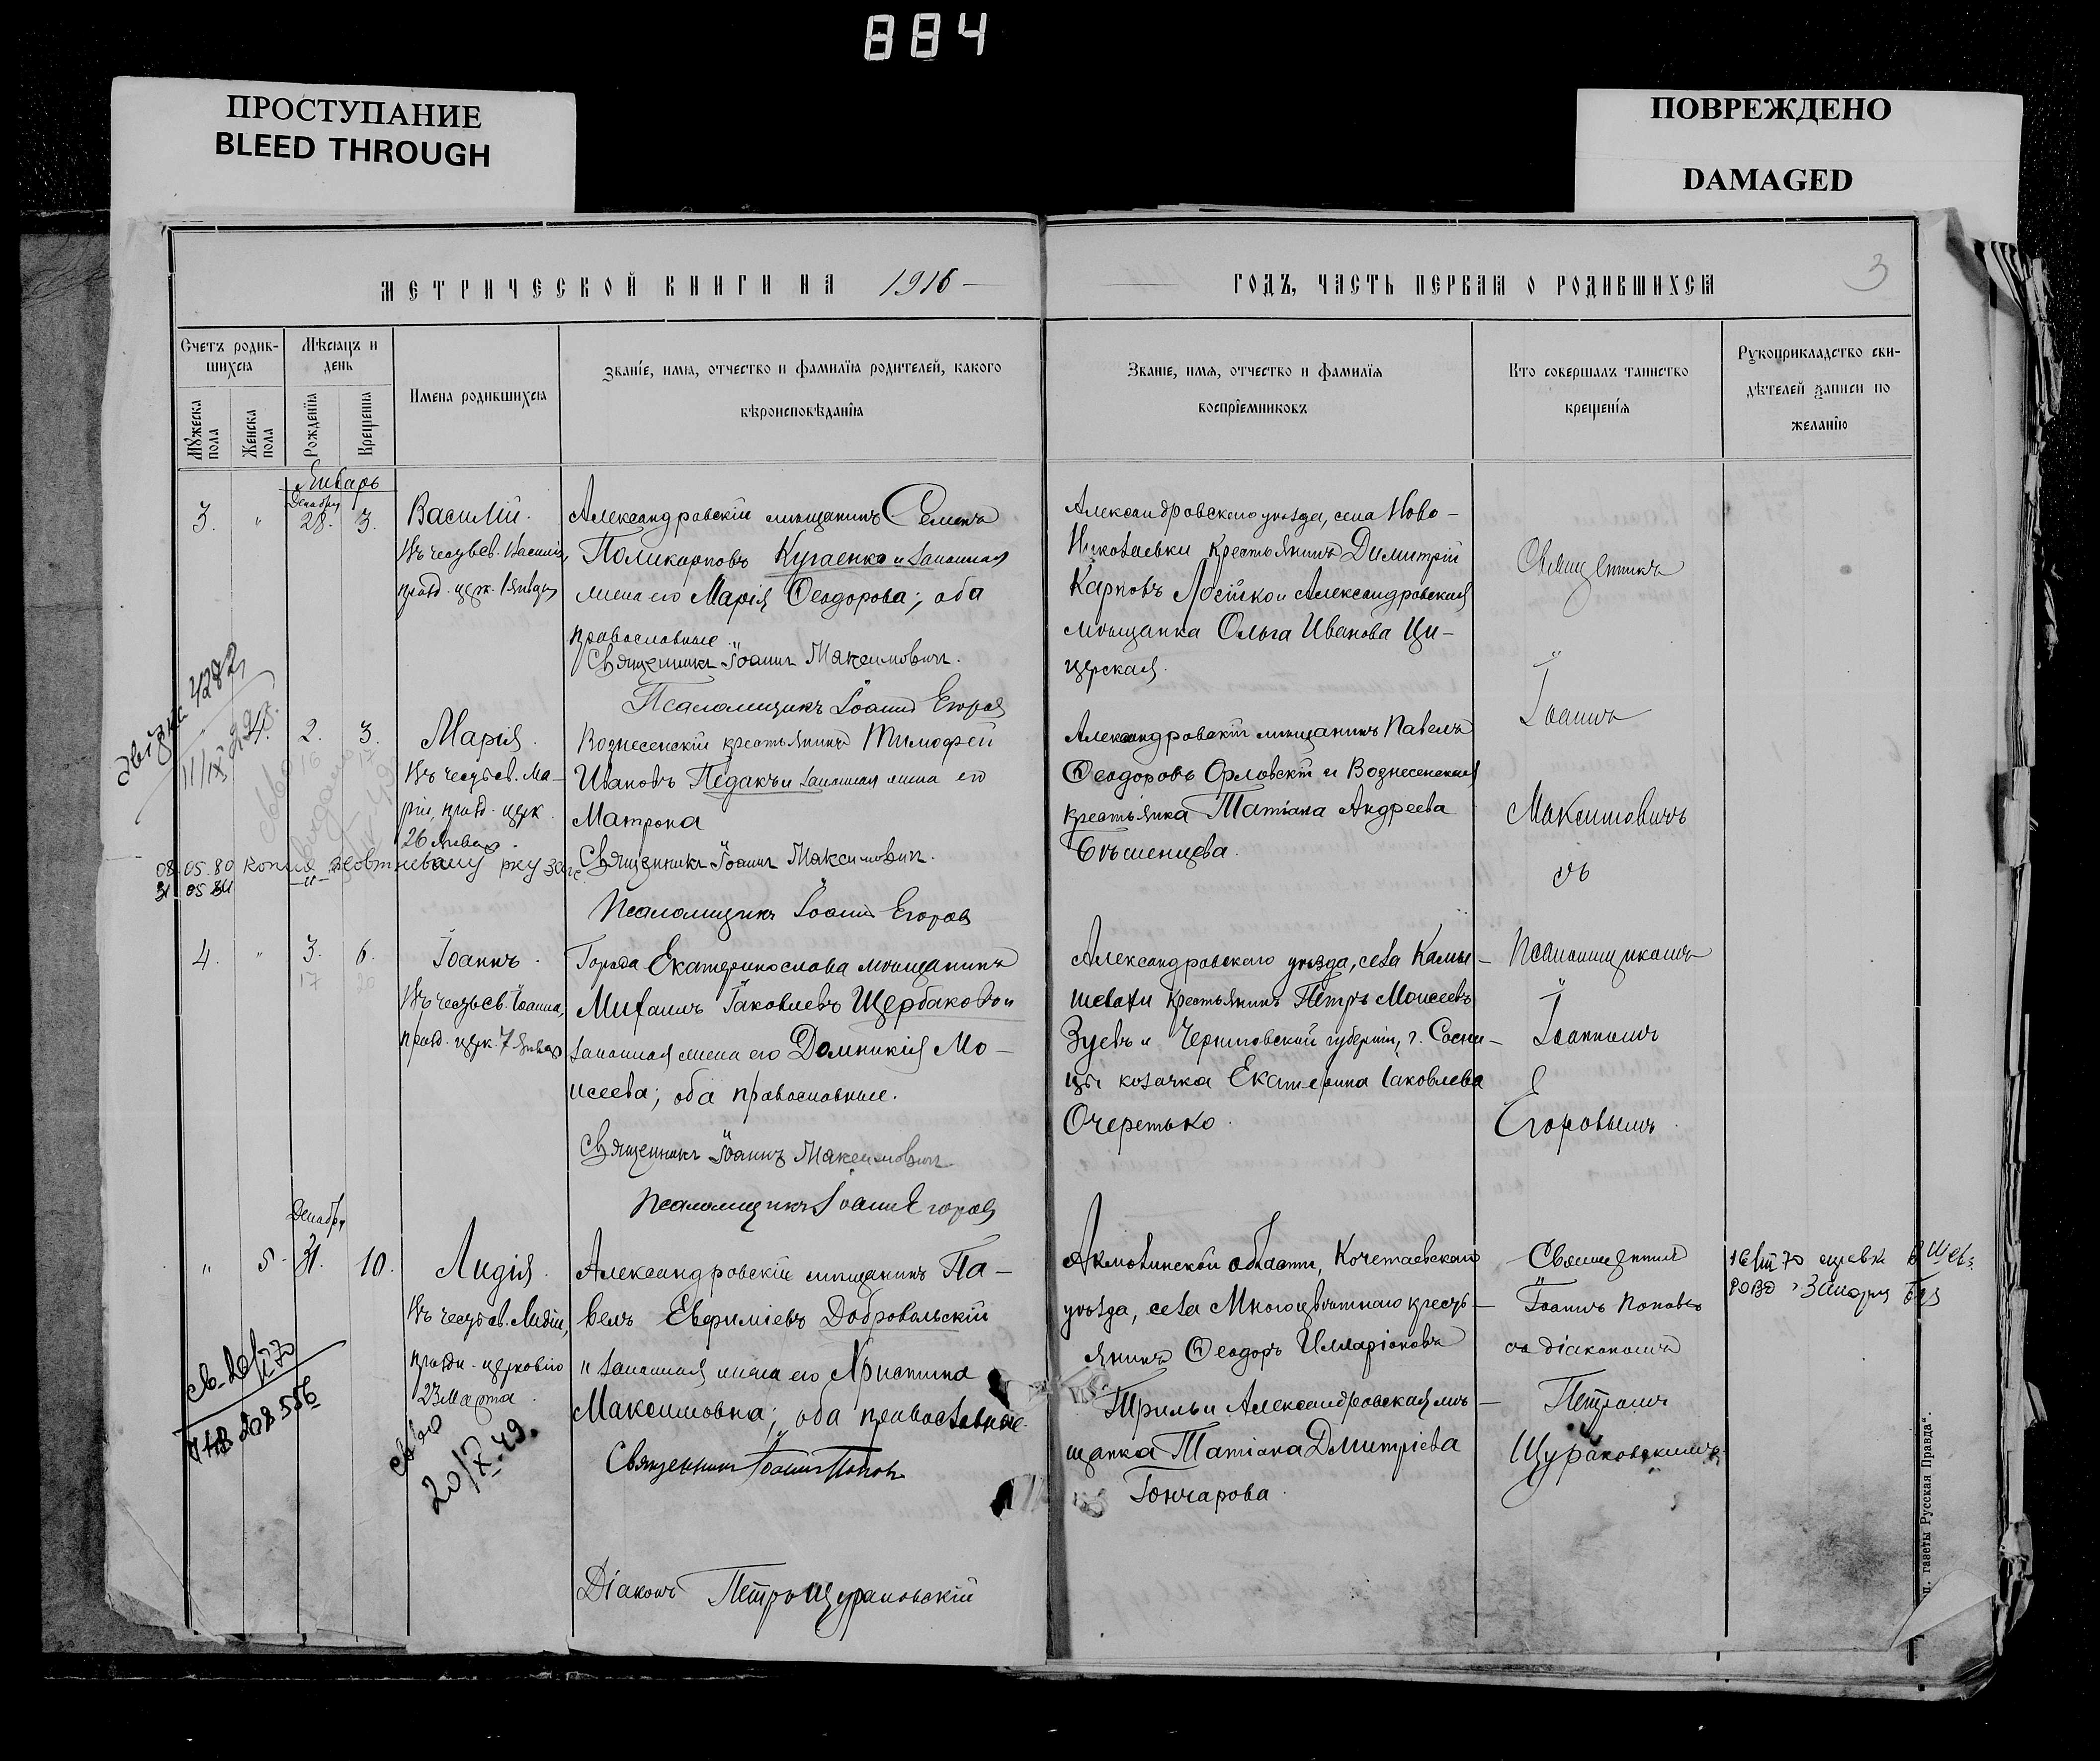 884
ПРОСТУПАНИЕ
BLEED THROUGH
ПОВРЕЖДЕНО
DAMAGED
МЕТРИЧЕСКОЙ КНИГИ НА 1916 —
ГОДЪ, ЧАСТЬ ПЕРВАЯ О РОДИВШИХСЯ
3
Счетъ родив-
шихся
Мужеска пола
Женска пола
Мѣсяцъ и
день
Рожденія
Крещенія
Имена родившихся
Званіе, имя, отчество и фамилія родителей, какого
вѣроисповѣданія
Званіе, имя, отчество и фамилія
воспріемниковъ
Кто совершалъ таинство
крещенія
Рукоприкладство сви-
дѣтелей записи по
желанію
Январь
3. " Декабря 28. 3.
Василій.
Въ честь св. Василія,
празд. церк. 1 Января
Александровскій мѣщанинъ Семенъ
Поликарповъ Кугаенко и законная
жена его Марія Ѳеодорова; оба
православные.
Священникъ Іоаннъ Максимовичъ.
Псаломщикъ Іоаннъ Егоровъ
Александровскаго уѣзда, села Ново-
Николаевки крестьянинъ Димитрій
Карповъ Лосійко и Александровская
мѣщанка Ольга Иванова Ци-
церская.
Священникъ
Іоаннъ
Максимовичъ
съ
Псаломщикомъ
Іоанномъ
Егоровымъ.
4282
11/IX
4. 2. 3.
16 17
Марія.
Въ честь св. Ма-
ріи, празд. церк.
26 Января.
Вознесенскій крестьянинъ Тимофей
Ивановъ Педакъ и законная жена его
Матрона
Священникъ Іоаннъ Максимовичъ.
Псаломщикъ Іоаннъ Егоровъ
Александровскій мѣщанинъ Павелъ
Ѳеодоровъ Орловскій и Вознесенская
крестьянка Татіана Андреева
08.05.80 копия Жовтневому рку загс
31 05 84 —"—
4. " 3. 6.
17 20
Іоаннъ.
Въ честь св. Іоанна,
празд. церк. 7 Января
Города Екатеринослава мѣщанинъ
Михаилъ Іаковлевъ Щербаковъ и
законная жена его Домникія Мо-
исеева; оба православные.
Священникъ Іоаннъ Максимовичъ
Псаломщикъ Іоаннъ Егоровъ
Александровскаго уѣзда, села Камы-
шевахи крестьянинъ Петръ Моисеевъ
Зуевъ и Черниговской губерніи, г. Сосни-
цы козачка Екатерина Іаковлева
Очеретько.
" 5. Декабря 31. 10.
Лидія.
Въ честь св. Лидіи,
праздн. церковію
23 Марта.
Александровскій мѣщанинъ Па-
велъ Евфиміевъ Добровольскій
и законная жена его Христина
Максимовна; оба православные.
Священникъ Іоаннъ Поповъ
Діаконъ Петръ Щураковскій
Акмолинской области, Кочетаевскаго
уѣзда, села Многоцвѣтнаго кресть-
янинъ Ѳеодоръ Илларіоновъ
Триль и Александровская мѣ-
щанка Татіана Дмитріева
Гончарова.
Священникъ
Іоаннъ Поповъ
со діакономъ
Петромъ
Щураковскимъ.
20/X.49.
п. газеты „Русская Правда".